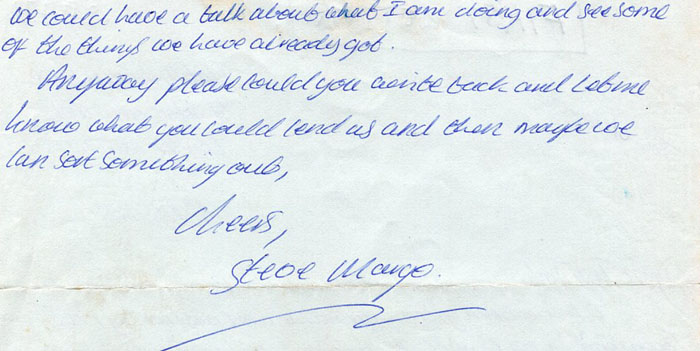 we could have a talk about what I am doing and see some
of the things we have already got.
Anyway please could you write back and let me
know what you could lend us and then maybe we
can sort something out,
Cheers,
Steve Mango.